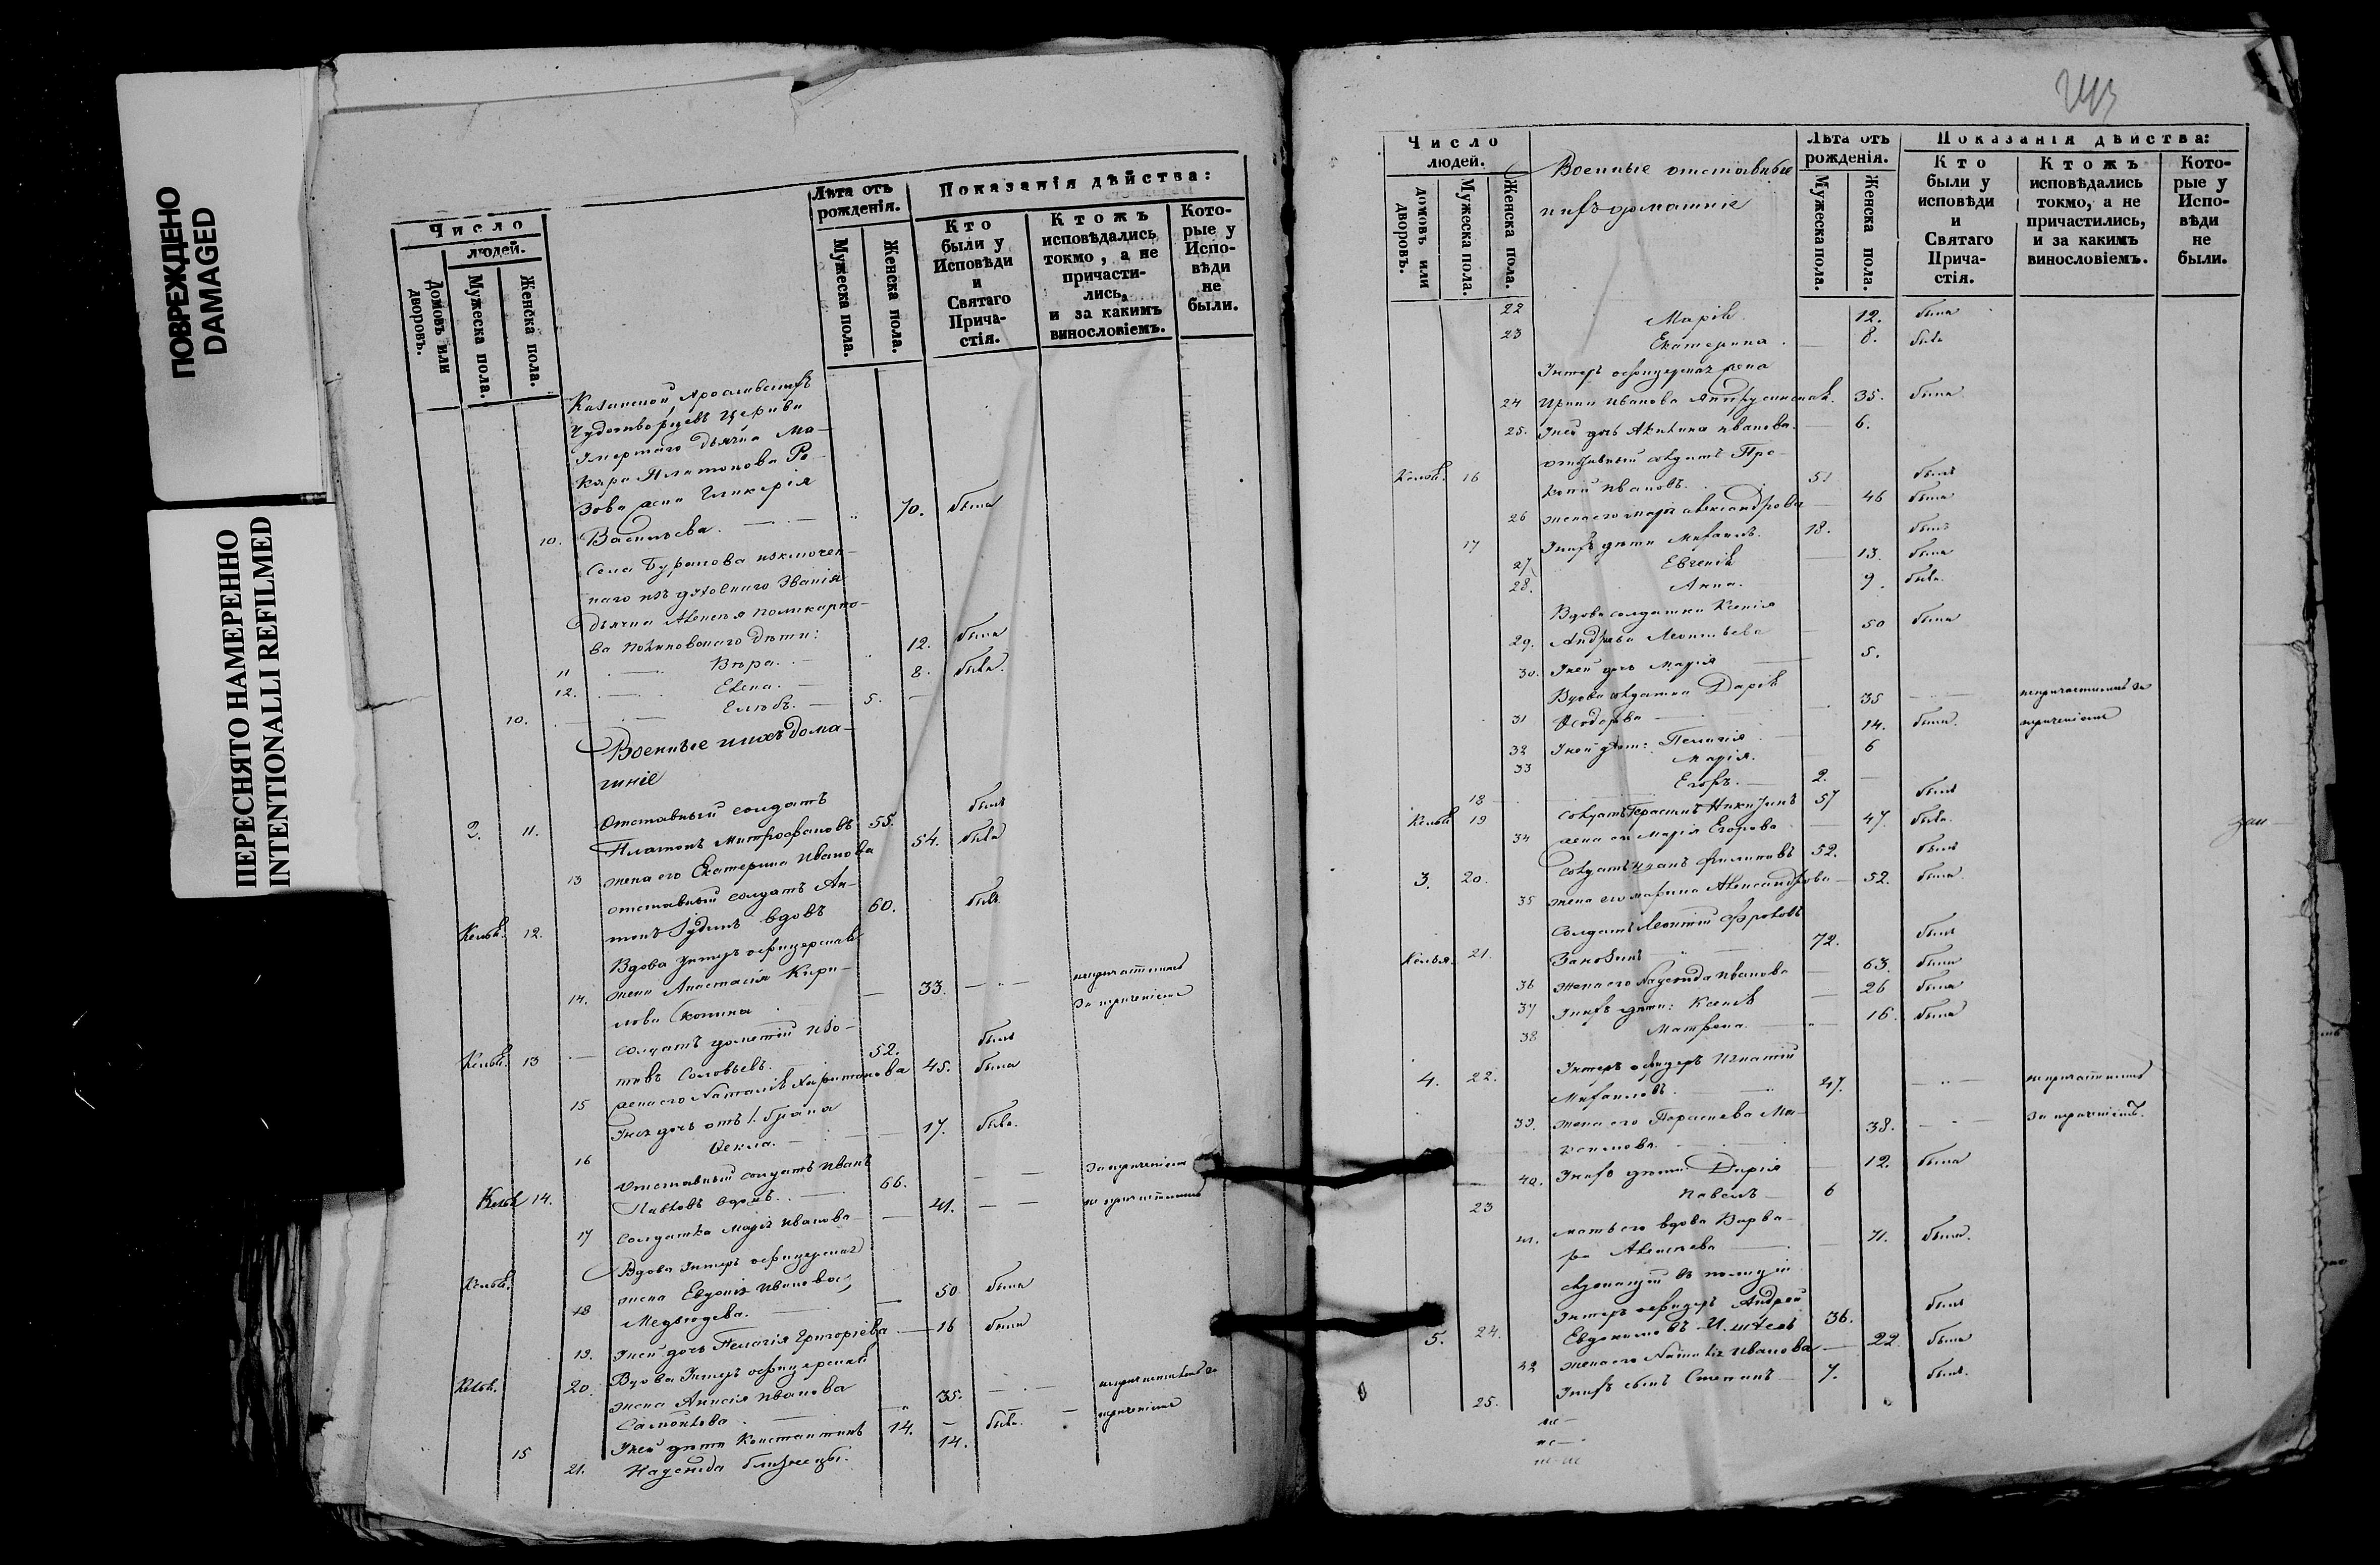 ПОВРЕЖДЕНО
DAMAGED
ПЕРЕСНЯТО НАМЕРЕННО
INTENTIONALLI REFILMED
Число
людей.
Домовъ или дворовъ.
Мужеска пола.
Женска пола.
Лѣта отъ рожденія.
Мужеска пола.
Женска пола.
Показанія дѣйства:
Кто были у Исповѣди и Святаго Прича-стія.
Ктожъ исповѣдались токмо, а не причасти-лись, и за какимъ винословіемъ.
Кото-рые у Испо-вѣди не были.
Чудотворцевъ Церкви
Умершаго Дьячка Ма-
кара Платонова Ро-
зова жена Гликерія
10. Васильева. 70. была
Села Буранова исключен-
наго изъ духовнаго званія
дьячка Алексѣя Поликарпо-
ва дѣти:
11 Вѣра. 12. была
12. Елена. 8. была.
10. 5.
Военные и ихъ дома-
шніе
Отставный солдатъ
2. 11. Платонъ Митрофановъ 55. былъ
13 жена его Екатерина Иванова 54. была
отставный солдатъ Ан-
Келья. 12. тонъ Юдинъ вдовъ 60. былъ
Вдова унтеръ офицерская
14. жена Анастасія Кири- 33.
лова
Келья. 13 Соловьевъ. 52. былъ
15 жена его Наталія Харитонова 45. была
дочь отъ 1. брака
16 Ѳекла. 17. была.
Отставный солдатъ Иванъ
Келья 14. Павловъ вдовъ. 66.
17 солдатка Марія Иванова 41.
Вдова унтеръ офицерская
Келья. 18 жена Евдокія Иванова 50 была
19. Унеи дочь Пелагія Григоріева 16 была
Келья. 20. Вдова Унтеръ офицерская
жена Анисія Иванова 35.
15 Унеи дѣти Константинъ 14. былъ.
21. Надежда близнецы. 14.
Число
людей.
домовъ или дворовъ.
Мужеска пола.
Женска пола.
Военные отставные
и ихъ домашніе
Лѣта отъ рожденія.
Мужеска пола.
Женска пола.
Показанія дѣйства:
Кто были у исповѣди и Святаго Прича-стія.
Ктожъ исповѣдались токмо, а не причастились, и за какимъ винословіемъ.
Кото-рые у Испо-вѣди не были.
22 Марія 12. была
23 Екатерина 8. была
Унтеръ офицерская жена
24 Ирина Иванова 35. была
25. Унеи дочь Иванова 6.
отставный солдатъ Про-
Келья. 16 копій Ивановъ. 51 былъ
26 жена его Марія Александрова 46 была
17 Унихъ дѣти Михаилъ. 18. былъ
27 Евгенія 13. была
28. Анна. 9. была.
Вдова солдатка Ксенія
29. Андреева Леонтьева 50 была
30. Унеи дочь Марія 5.
Вдова солдатка Дарія
31 Ѳедорова 35
32 Унеи дѣти: Пелагія 14. была.
33 Марія. 6
18 Егоръ. 2.
Келья 19 солдатъ Герасимъ Никитинъ 57 былъ
34 жена его Марія Егорова 47. была.
3. 20. солдатъ Иванъ Филиповъ 52. былъ
35 жена его Марина Александрова 52. была.
солдатъ Леонтій Фроловъ
Келья. 21. 72. былъ
36 жена его Надежда Иванова 63. была
37 Унихъ дѣти: Ксенія 26 была
38 Матрона. 16. была
Унтеръ офицеръ Игнатій
4. 22. Михаиловъ. 47.
39. жена его Параскева Ма- 38.
ксимова.
40. Унихъ дѣти Дарія 12. была
23 Павелъ 6
41. мать его вдова Варва-
ра Алексѣева 71. была.
служащій въ полиціи
Унтеръ офицеръ Андрей
5. 24. Евдокимовъ 36. былъ
42 жена его Наталія Иванова 22. была
25. Унихъ сынъ Степанъ 7. былъ.